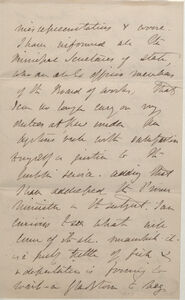 misrepresentations & worse
I have informed all the
Ministers Secretaries of State
who are ex officio members
of the Board of works, that
I can no longer carry on my
duties at Kew under the
system with satisfaction
to myself or justice to the
public service. adding that
I have addressed the Prime
Minister on the subject. I am
curious to see what will
come of it all. meanwhile it
is a pretty kettle of fish &
a deputation is forming to
wait on Gladstone & beg